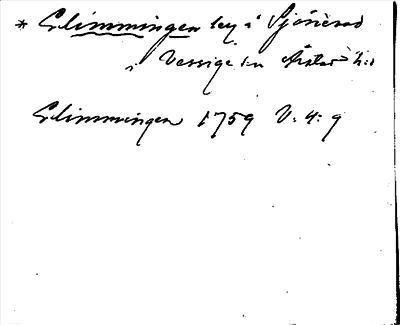 * Glimmingen lex i Sjönevad
i Vessige sn Årstad h:d
Glimmingen 1759 V: 4: 9